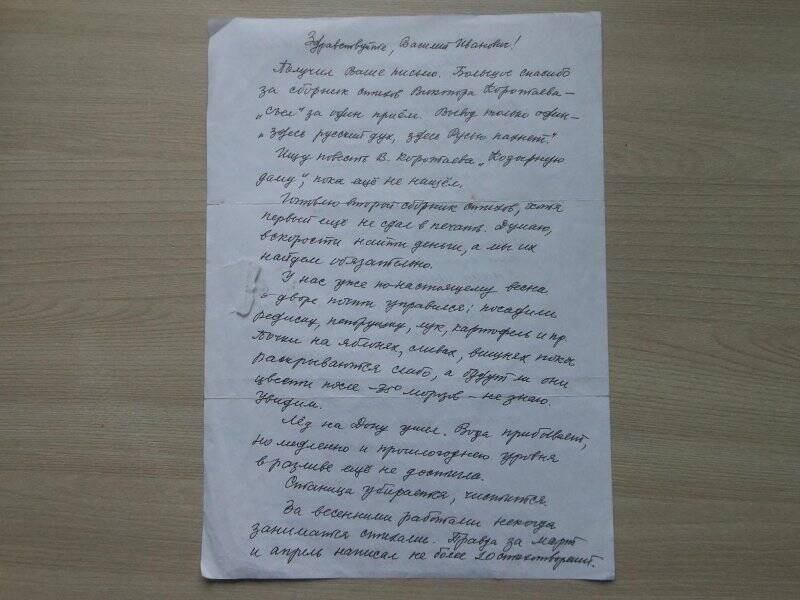 Здравствуйте, Василий Иванович!
Получил Ваше письмо. Большое спасибо
за сборник стихов Виктора Коротаева –
„съел“ за один приём. Вывод только один –
„здесь русский дух, здесь Русью пахнет.“
Ищу повесть В. Коротаева „Козырную
даму“, пока ещё не нашёл.
Готовлю второй сборник стихов, хотя
первый ещё не сдал в печать. Думаю,
вскорости найти деньги, а мы их
найдем обязательно.
У нас уже по-настоящему весна.
В дворе почти управился: посадили
редиску, петрушку, лук, картофель и пр.
Почки на яблонях, сливах, вишнях пока
раскрываются слабо, а будут ли они
цвести после -35° мороза – не знаю.
Увидим.
Лёд на Дону ушел. Вода прибывает,
но медленно и прошлогоднего уровня
в разливе ещё не достигла.
Станица убирается, чистится.
За весенними работами некогда
заниматься стихами. Правда за март
и апрель написал не более 20 стихотворений.